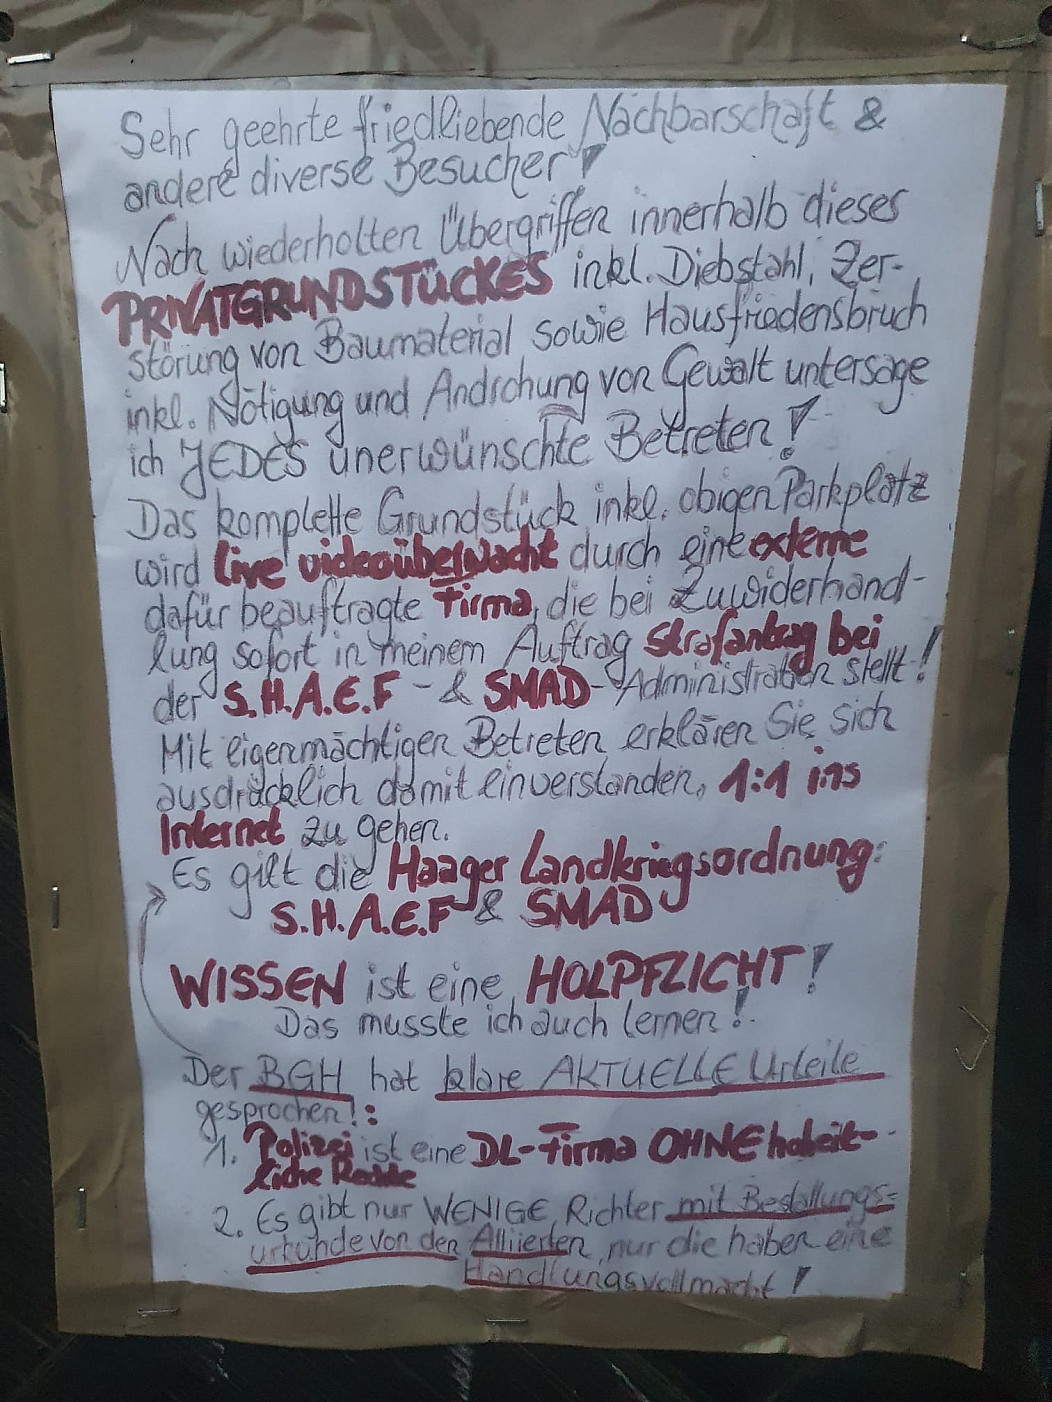 Sehr geehrte friedliebende Nachbarschaft &
andere diverse Besucher!
Nach wiederholten Übergriffen innerhalb dieses
PRIVATGRUNDSTÜCKES inkl. Diebstahl, Zer-
störung von Baumaterial sowie Hausfriedensbruch
inkl. Nötigung und Androhung von Gewalt untersage
ich JEDES unerwünschte Betreten!
Das komplette Grundstück inkl. obigen Parkplatz
wird live videoüberwacht durch eine externe
dafür beauftragte Firma, die bei Zuwiderhand-
lung sofort in meinem Auftrag Strafantrag bei
der S.H.A.E.F - & SMAD-Administration stellt!
Mit eigenmächtigen Betreten erklären Sie sich
ausdrücklich damit einverstanden, 1:1 ins
Internet zu gehen.
Es gilt die Haager Landkriegsordnung:
S.H.A.E.F & SMAD
WISSEN ist eine HOLPFLICHT!
Das musste ich auch lernen!
Der BGH hat klare AKTUELLE Urteile
gesprochen!:
1. Polizei ist eine DL-Firma OHNE hoheit-
liche Rechte
2. Es gibt nur WENIGE Richter mit Bestallungs=
urkunde von den Alliierten, nur die haben eine
Handlungsvollmacht!